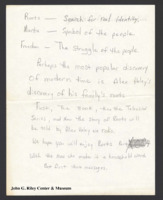 Roots — Search for real identity.
Roots — Symbol of the people.
Freedom — The struggle of the people
Perhaps the most popular discovery
of modern times is Alex Haley's
discovery of his family's roots.
First, the book, then the Television
Series, and now the story of Roots will
be told by Alex Haley on radio.
We hope you will enjoy Roots
With the man who made it a household word
John G. Riley Center & Museum